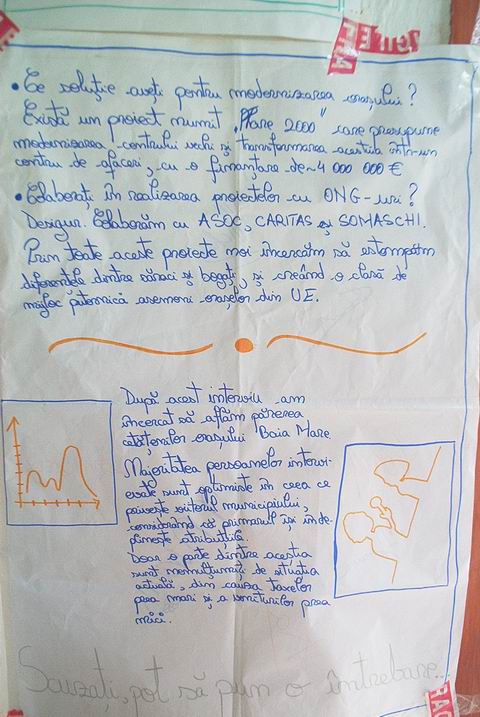 • Ce soluție aveți pentru modernizarea orașului?
Există un proiect numit „Mare 2000" care presupune
modernizarea centrului vechi și transformarea acestuia într-un
centru de afaceri, cu o finanțare de ~4 000 000 €
• Colaborați în realizarea proiectelor cu ONG-uri?
Desigur. Colaborăm cu ASOC, CARITAS și SOMASCHI.
Prin toate aceste proiecte noi încercăm să estompăm
diferențele dintre săraci și bogați, și creând o clasă de
mijloc puternică asemeni orașelor din UE.
După acest interviu am
încercat să aflăm părerea
cetățenilor orașului Baia Mare.
Majoritatea persoanelor intervi-
evate sunt optimiste în ceea ce
privește viitorul municipiului,
considerând că primarul își înde-
plinește atribuțiile.
Doar o parte dintre aceștia
sunt nemulțumiți de situația
actuală, din cauza taxelor
prea mari și a veniturilor prea
mici.
Scuzați, pot să pun o întrebare...